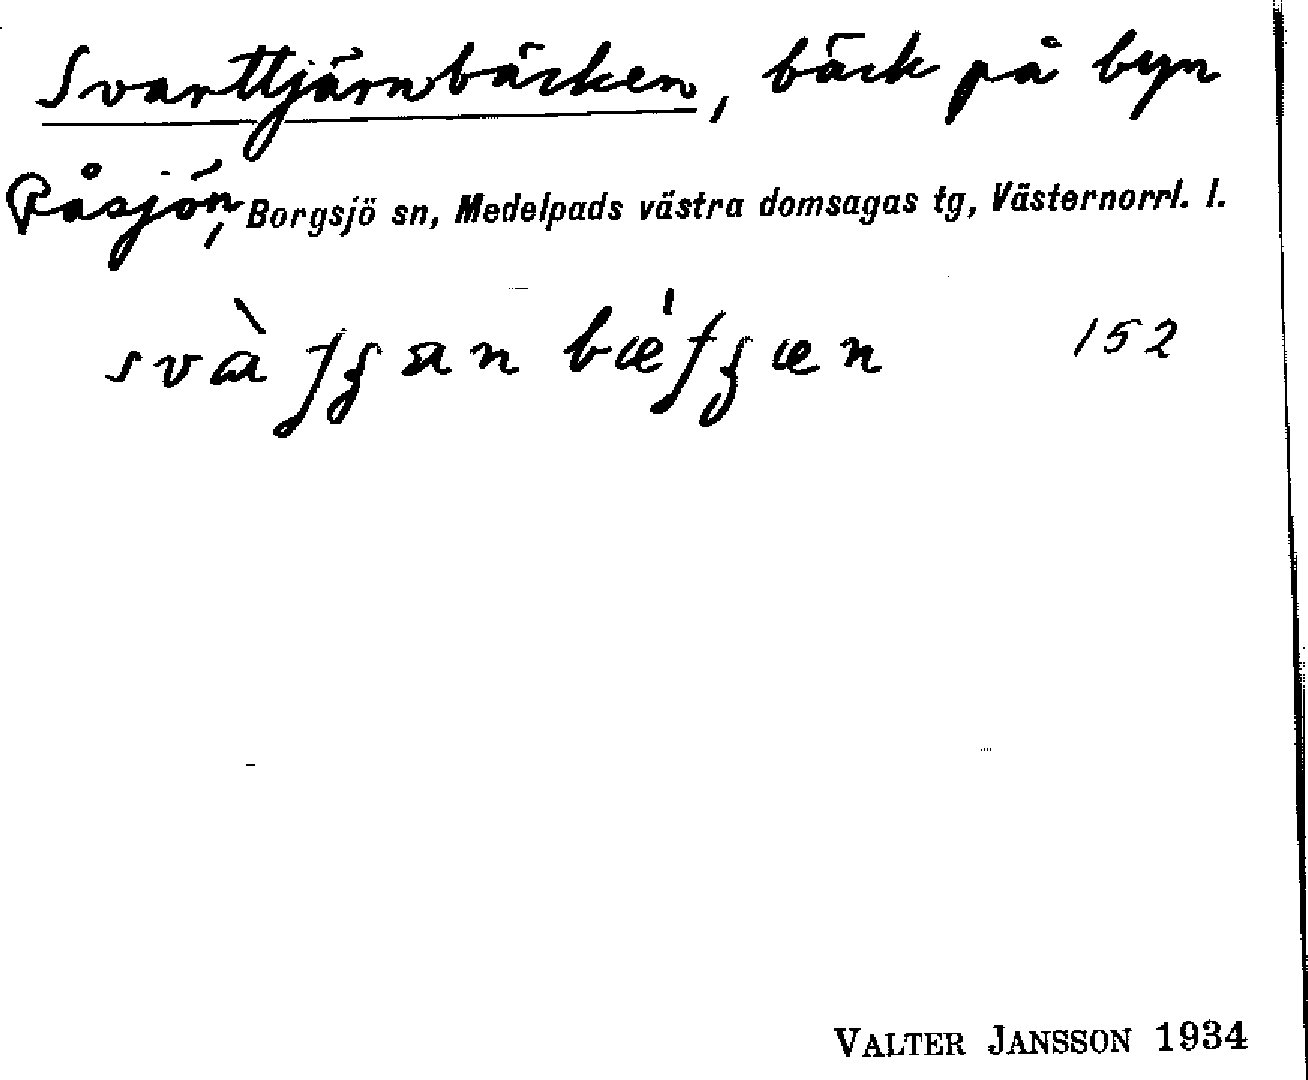 Svarttjärnbäcken, bäck på byn
Påsjön, Borgsjö sn, Medelpads västra domsagas tg, Västernorrl. l.
152
VALTER JANSSON 1934